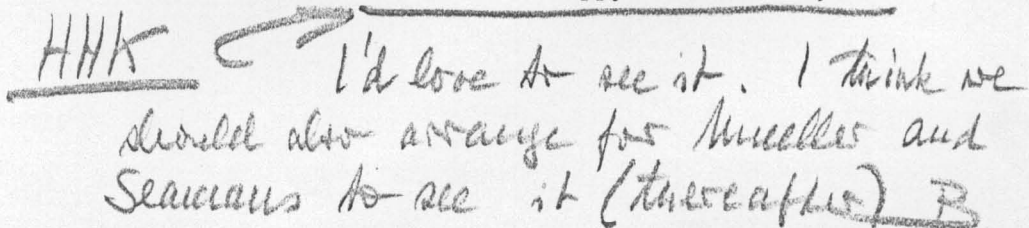 HHK I'd love to see it. I think we
should also arrange for Mueller and
Seamans to see it (thereafter) B